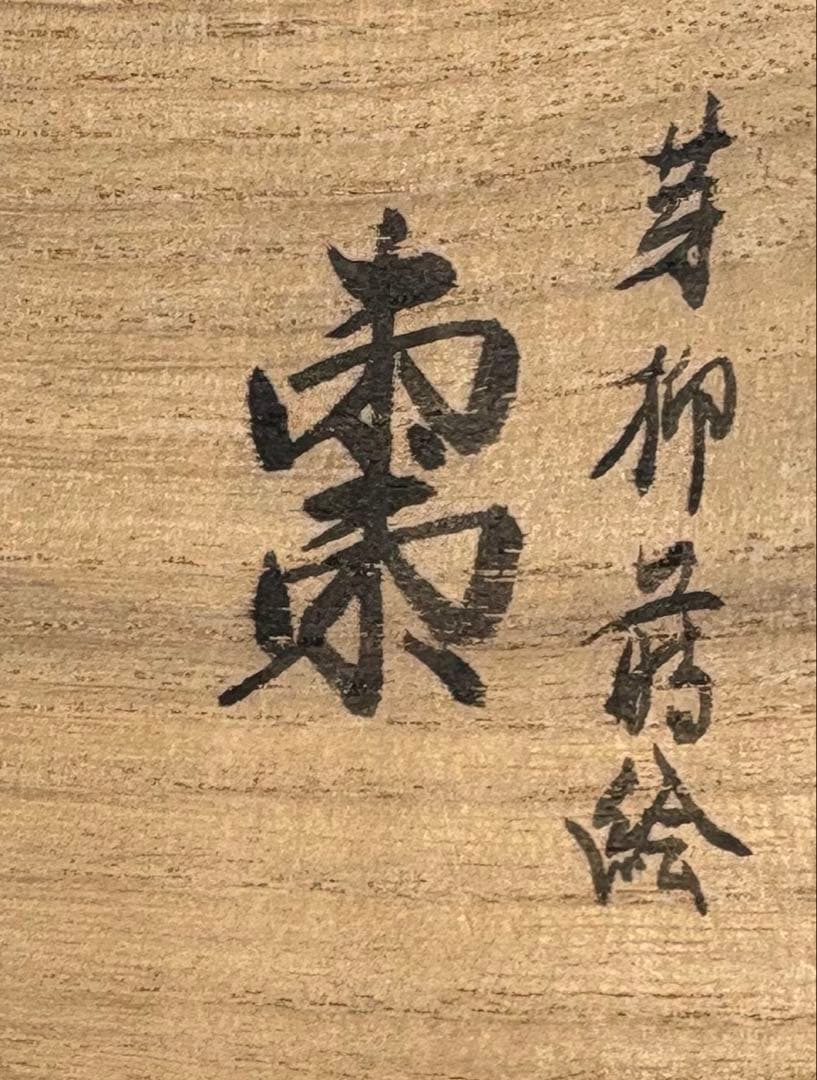 芽柳蒔絵
棗